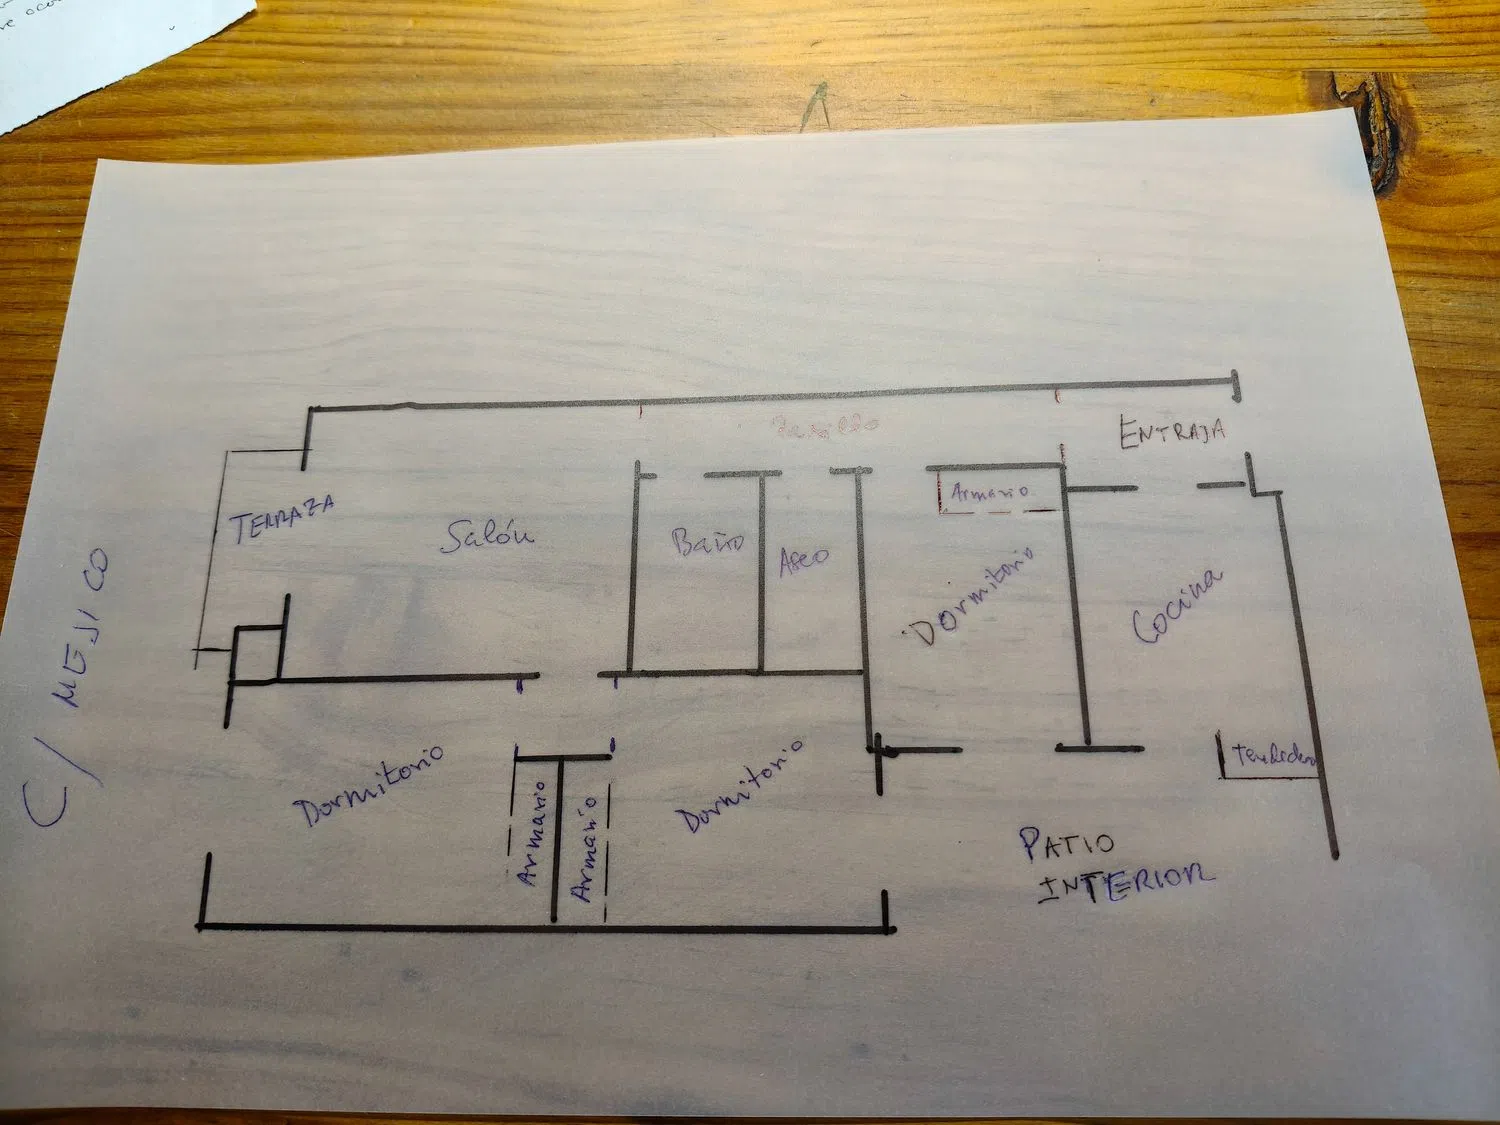 Pasillo
ENTRAJA
Armario
TERRAZA
Salón
Baño
Aseo
Dormitorio
Cocina
C/ MEJICO
Dormitorio
Armario
Armario
Dormitorio
Tendedero
PATIO
INTERIOR